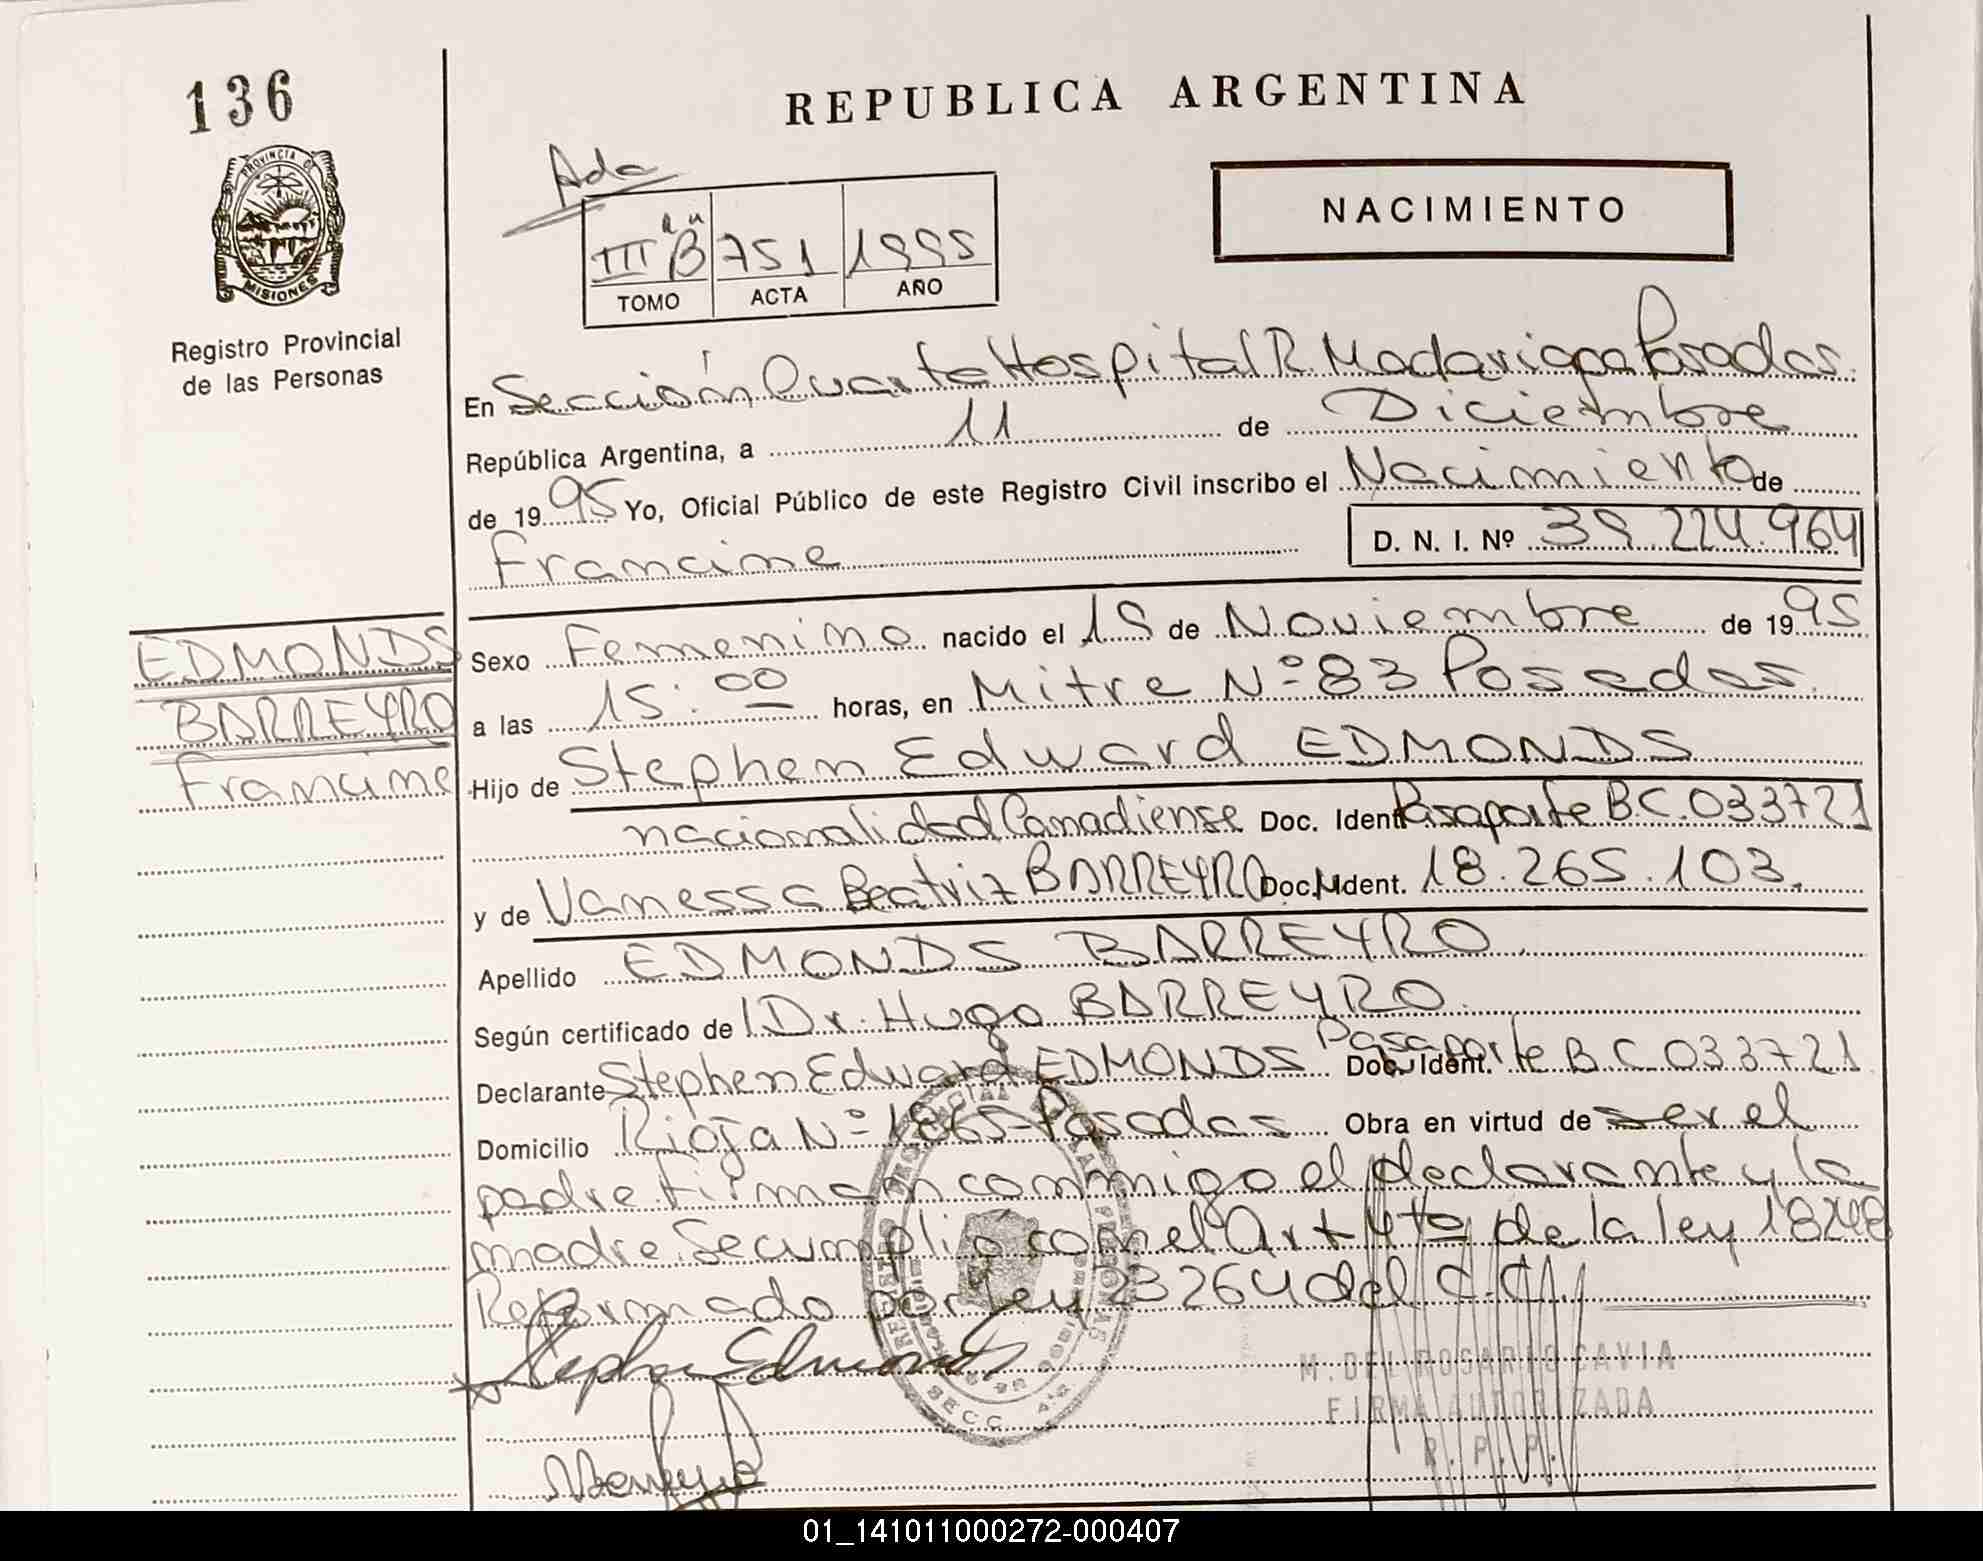 136
PROVINCIA DE
MISIONES
Registro Provincial
de las Personas
REPUBLICA ARGENTINA
NACIMIENTO
Ada
III "B" 751 1995
TOMO ACTA AÑO
En Sección Cuarta Hospital R. Madariaga Posadas.
República Argentina, a 11 de Diciembre
de 1995 Yo, Oficial Público de este Registro Civil inscribo el Nacimiento de
Francine
D. N. I. Nº 39.224.964
EDMONDS
BARREYRO
Francine
Sexo Femenino nacido el 19 de Noviembre de 1995
a las 15:00 horas, en Mitre Nº 83 Posadas.
Hijo de Stephen Edward EDMONDS
nacionalidad Canadiense Doc. Ident. Pasaporte B.C.033721
y de Vanessa Beatriz BARREYRO Doc. Ident. 18.265.103.
Apellido EDMONDS BARREYRO.
Según certificado de Dr. Hugo BARREYRO.
Declarante Stephen Edward EDMONDS Doc. Ident. Pasaporte B C.033721
Domicilio Rioja Nº 1865-Posadas Obra en virtud de ser el
padre. Firman conmigo el declarante y la
madre. Se cumplió con el Art 4to de la ley 18248
Reformado por ley 23264 del C.C.
Stephen Edmonds
REGISTRO PROVINCIAL DE LAS PERSONAS
SECC. 4ª
M. DEL ROSARIO CAVIA
FIRMA AUTORIZADA
R. P. P.
01_141011000272-000407